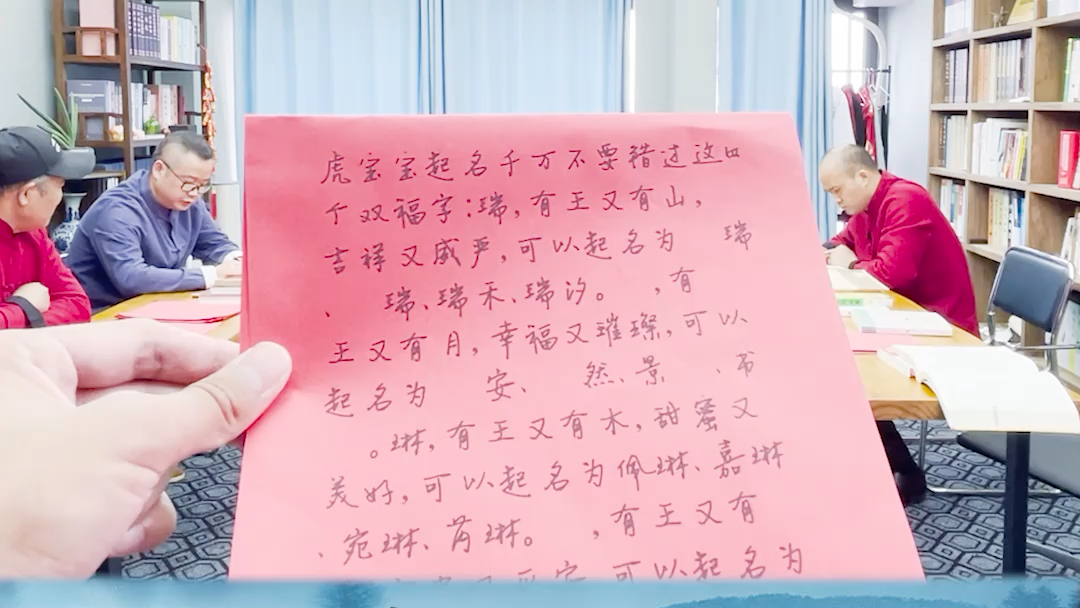 虎宝宝起名千万不要错过这四
个双福字:瑞,有王又有山,
吉祥又威严,可以起名为 瑞
、 瑞、瑞禾、瑞汐。 ,有
王又有月,幸福又璀璨,可以
起名为 安、 然、景 、书
。琳,有王又有木,甜蜜又
美好,可以起名为佩琳、嘉琳
、宛琳、芮琳。 ,有王又有
可以起名为